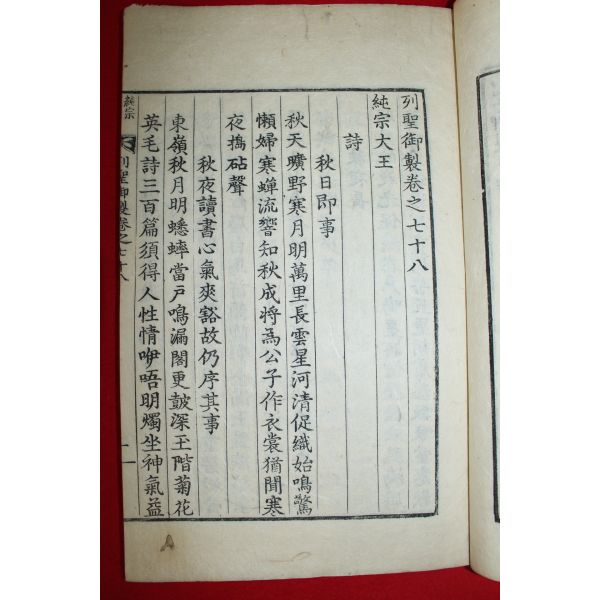 列聖御製卷之七十八
純宗大王
詩
秋日即事
秋天曠野寒月明萬里長雲星河清促織始鳴驚
懶婦寒蟬流響知秋成將為公子作衣裳猶聞寒
夜搗砧聲
秋夜讀書心氣爽豁故仍序其事
東嶺秋月明蟋蟀當戶鳴漏閣更皷深玉階菊花
英毛詩三百篇須得人性情咿唔明燭坐神氣益
列聖御製卷之七十八
一